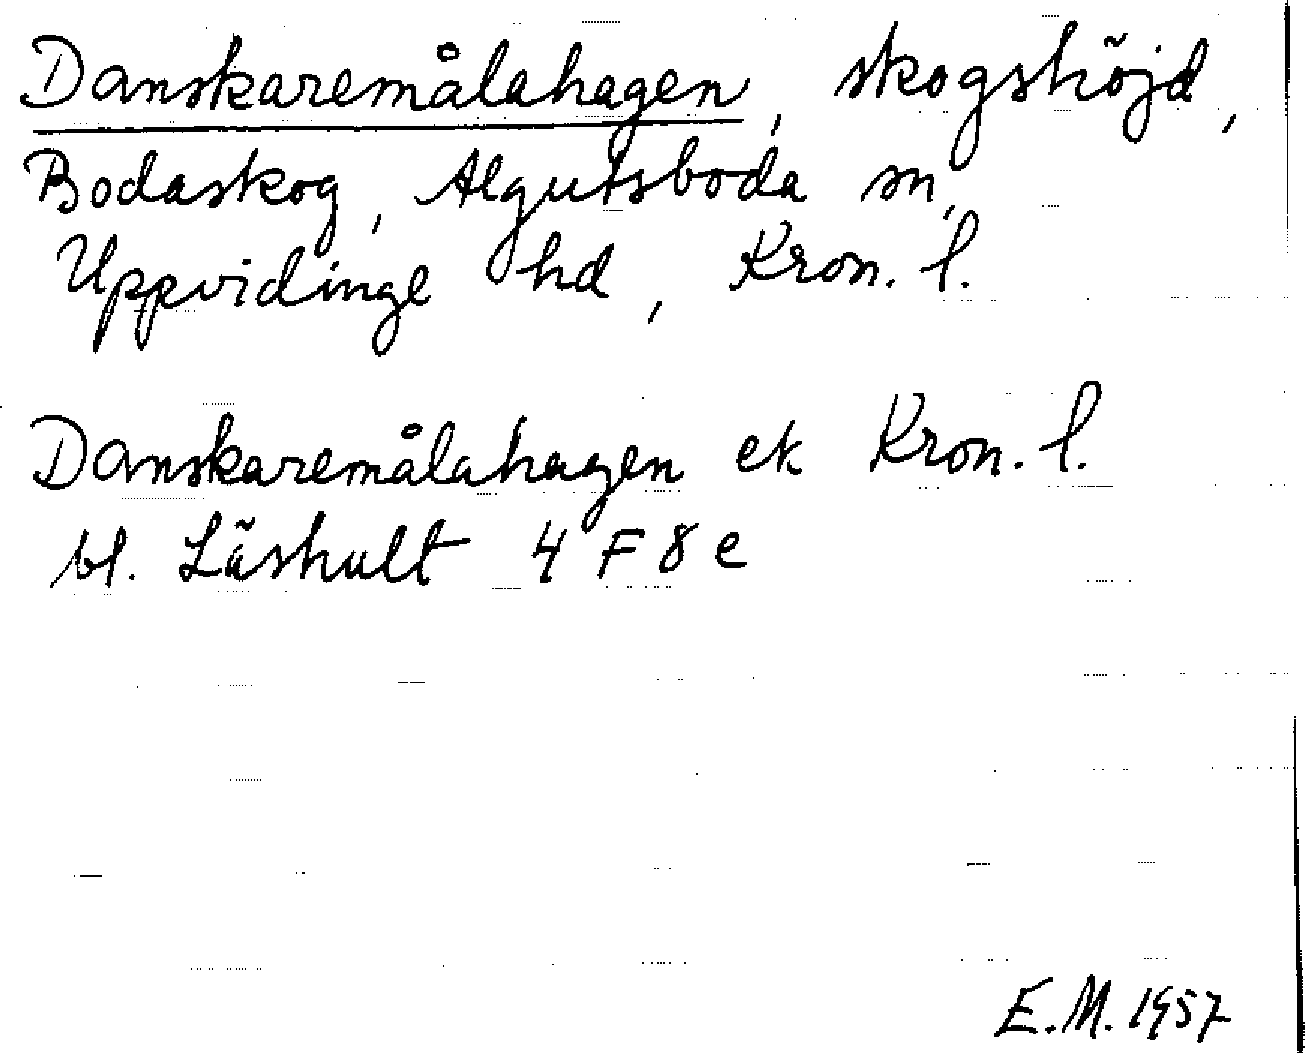 Danskaremålahagen, skogshöjd,
Bodaskog, Algutsboda sn,
Uppvidinge hd, Kron. l.
Danskaremålahagen ek Kron. l.
bl. Låshult 4 F 8 e
E.M. 1957